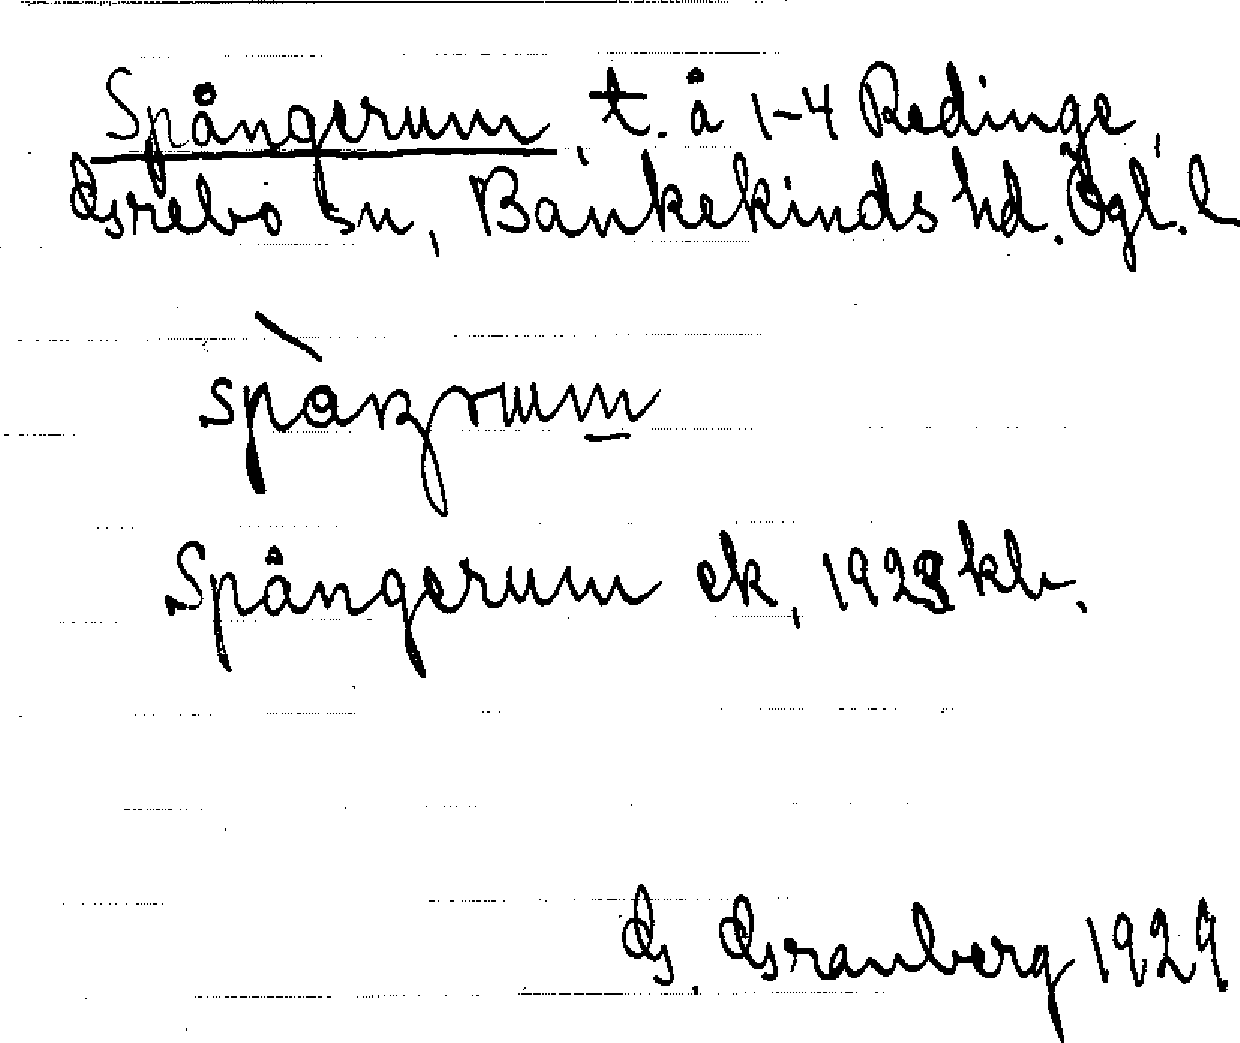 Spångerum, t. å 1-4 Redinge,
Grebo sn, Bankekinds hd. Ögl. l
Spångerum ek, 1928 kb.
G. Granberg 1929